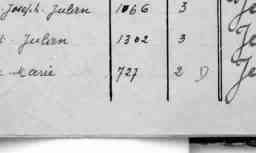 Joseph. Julien 1066 3
Julien 1302 3
Marie 727 2 D